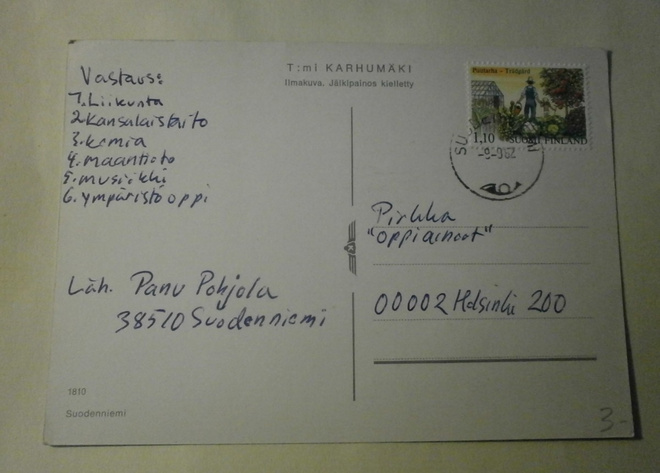 T:mi KARHUMÄKI
Ilmakuva. Jälkipainos kielletty
Vastaus:
1. Liikunta
2. Kansalaistaito
3. kemia
4. maantieto
5. musiikki
6. ympäristöoppi
Läh. Panu Pohjola
38510 Suodenniemi
1810
Suodenniemi
Puutarha - Trädgård
1,10 SUOMI FINLAND
Pirkka
"oppiaineet"
00002 Helsinki 200
3-